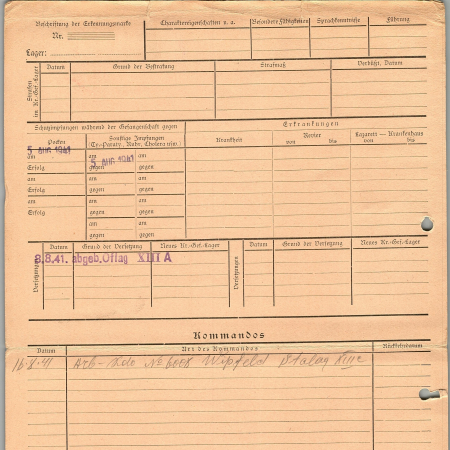 Beschriftung der Erkennungsmarke
Nr.
Lager:
Charaktereigenschaften u. a.
Besondere Fähigkeiten
Sprachkenntnisse
Führung
Strafen im Kr.-Gef.-Lager
Datum
Grund der Bestrafung
Strafmaß
Verbüßt, Datum
Schutzimpfungen während der Gefangenschaft gegen
Erkrankungen
Pocken
Sonstige Impfungen
(Ty.-Paraty., Ruhr, Cholera usw.)
Krankheit
Revier
von bis
Lazarett — Krankenhaus
von bis
5. AUG. 1941
5. AUG. 1941
am am am
Erfolg gegen gegen
am am am
Erfolg gegen gegen
am am am
Erfolg gegen gegen
am am
gegen gegen
Versetzungen
Datum
Grund der Versetzung
Neues Kr.-Gef.-Lager
Versetzungen
Datum
Grund der Versetzung
Neues Kr.-Gef.-Lager
8.8.41. abgeb. Oflag XIII A
Kommandos
Datum
Art des Kommandos
Rückkehrdatum
16.8.41 Arb-Kdo No 6008 Wipfeld Stalag